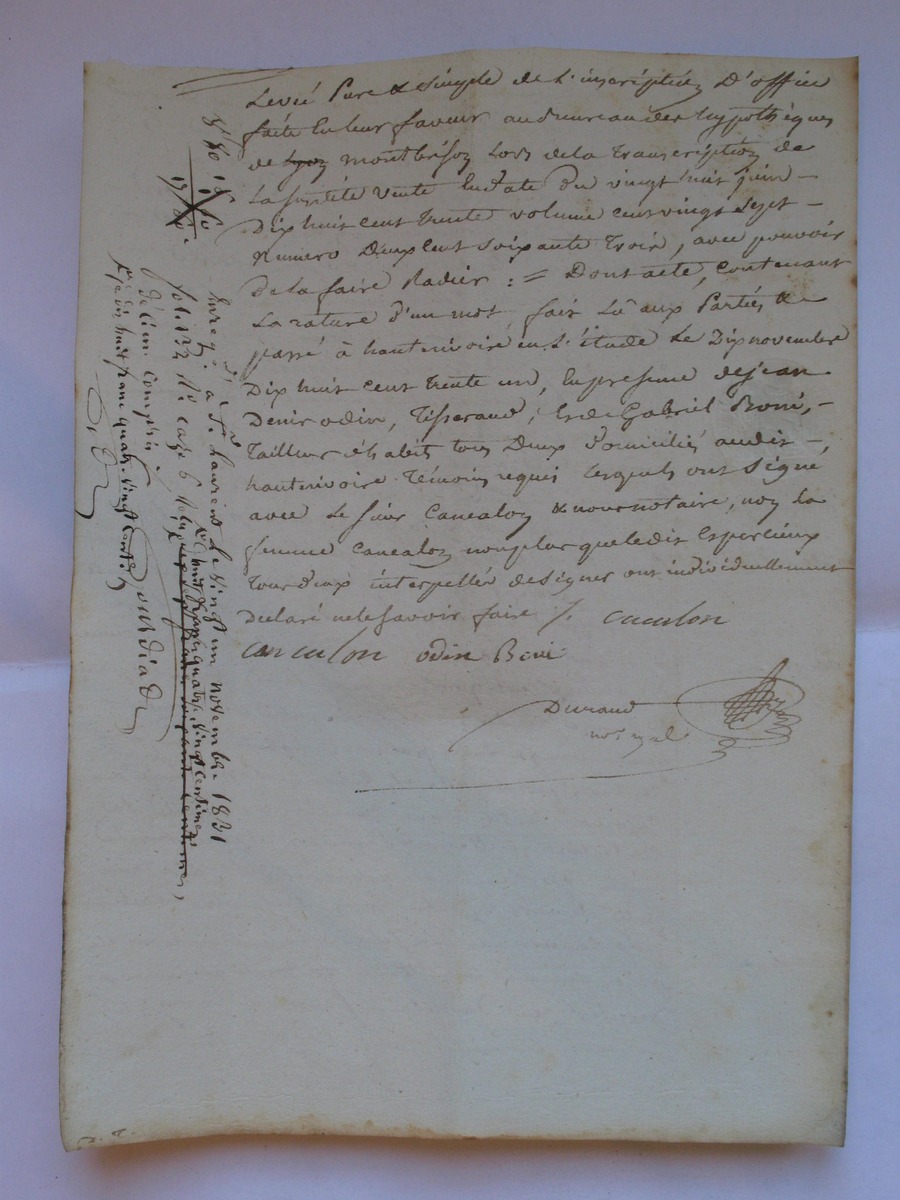 Levée Pure & Simple de L'inscription D'office
faite En leur faveur au Bureau des hypothèques
de Lyon montbrison Lors de la transcription de
La susditte vente En date Du vingt huit juin –
Dix huit cent trente volume cent vingt Sept –
Numero Deux cent soixante trois, avec pouvoir
de la faire Radier : = Dont acte, contenant
La rature d'un mot fait Lû aux Parties &
passé à hautrivoire en L'étude Le Dix novembre
Dix huit cent trente un, En presence de jean
Denis odin, Tisserand, Et de Gabriel Boni, –
Tailleur d'habits tous Deux Domiciliés audit –
hautrivoire Témoins requis lesquels ont Signé
avec Le Sieur Cancalon & nous notaire, non la
femme Cancalon non plus que ledit
tous deux interpellés de signer ont individuellement
Declaré ne le savoir faire /. cancalon
cancalon odin Boni
Durand
not. royal
Enreg. à St Laurent Le vingt un novembre 1831
fol. 132 Ro. case 6
huit francs quatre vingt centimes
Décime compris
dix huit franc quatre vingt cent.